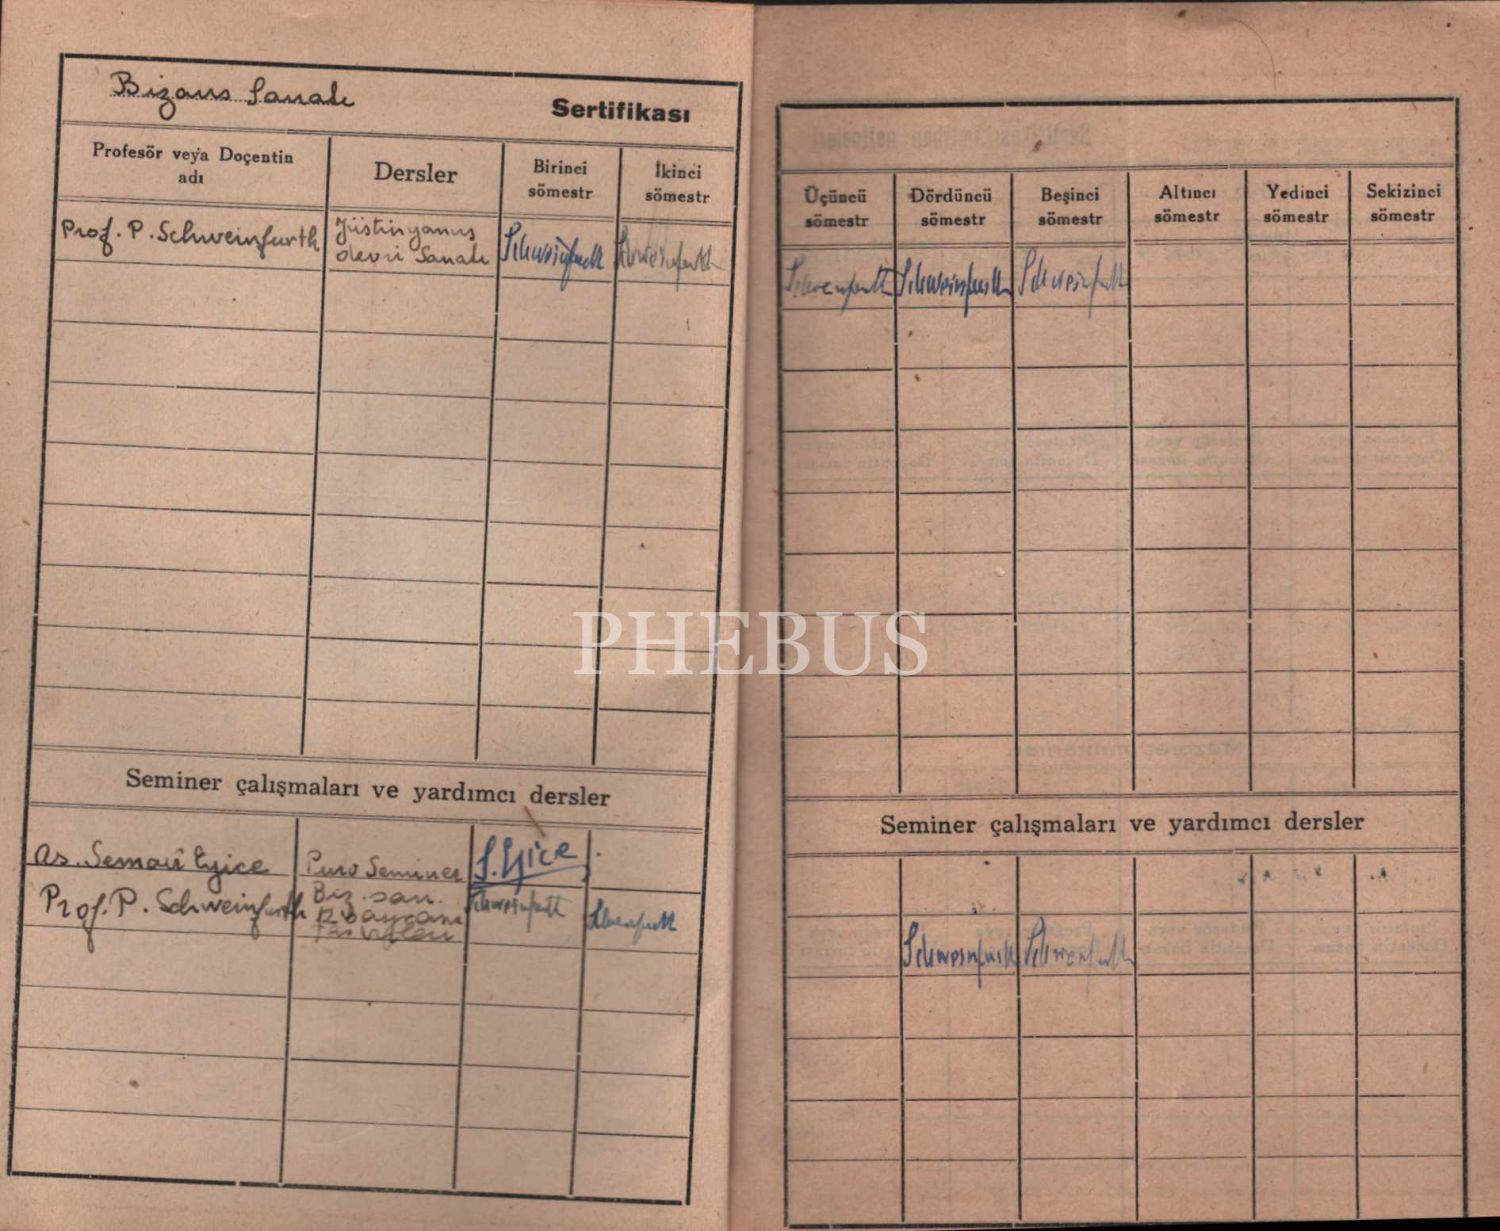 Bizans Sanatı Sertifikası
Profesör veya Doçentin adı
Dersler
Birinci sömestr
İkinci sömestr
Prof. P. Schweinfurth
Jüstinyanus
devri Sanatı
Schweinfurth
Schweinfurth
Seminer çalışmaları ve yardımcı dersler
as. Semavi Eyice
Puro Seminer
S. Eyice
Prof. P. Schweinfurth
Biz. san.
Schweinfurth
Schweinfurth
Üçüncü sömestr
Dördüncü sömestr
Beşinci sömestr
Altıncı sömestr
Yedinci sömestr
Sekizinci sömestr
Schweinfurth
Schweinfurth
Schweinfurth
PHEBUS
Seminer çalışmaları ve yardımcı dersler
Schweinfurth
Schweinfurth